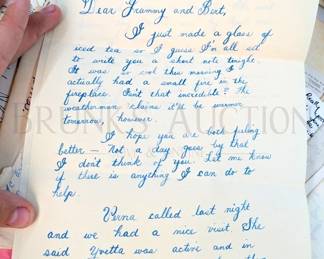 Dear Grammy and Bert,
I just made a glass of
iced tea so I guess I'm all set
to write you a short note tonight.
It was so cool this morning I
actually had a small fire in the
fireplace. Isn't that incredible? The
weatherman claims it'll be warmer
tomorrow, however.
I hope you are both feeling
better — Not a day goes by that
I don't think of you. Let me know
if there is anything I can do to
help.
Verna called last night
and we had a nice visit She
said Yvetta was active and in